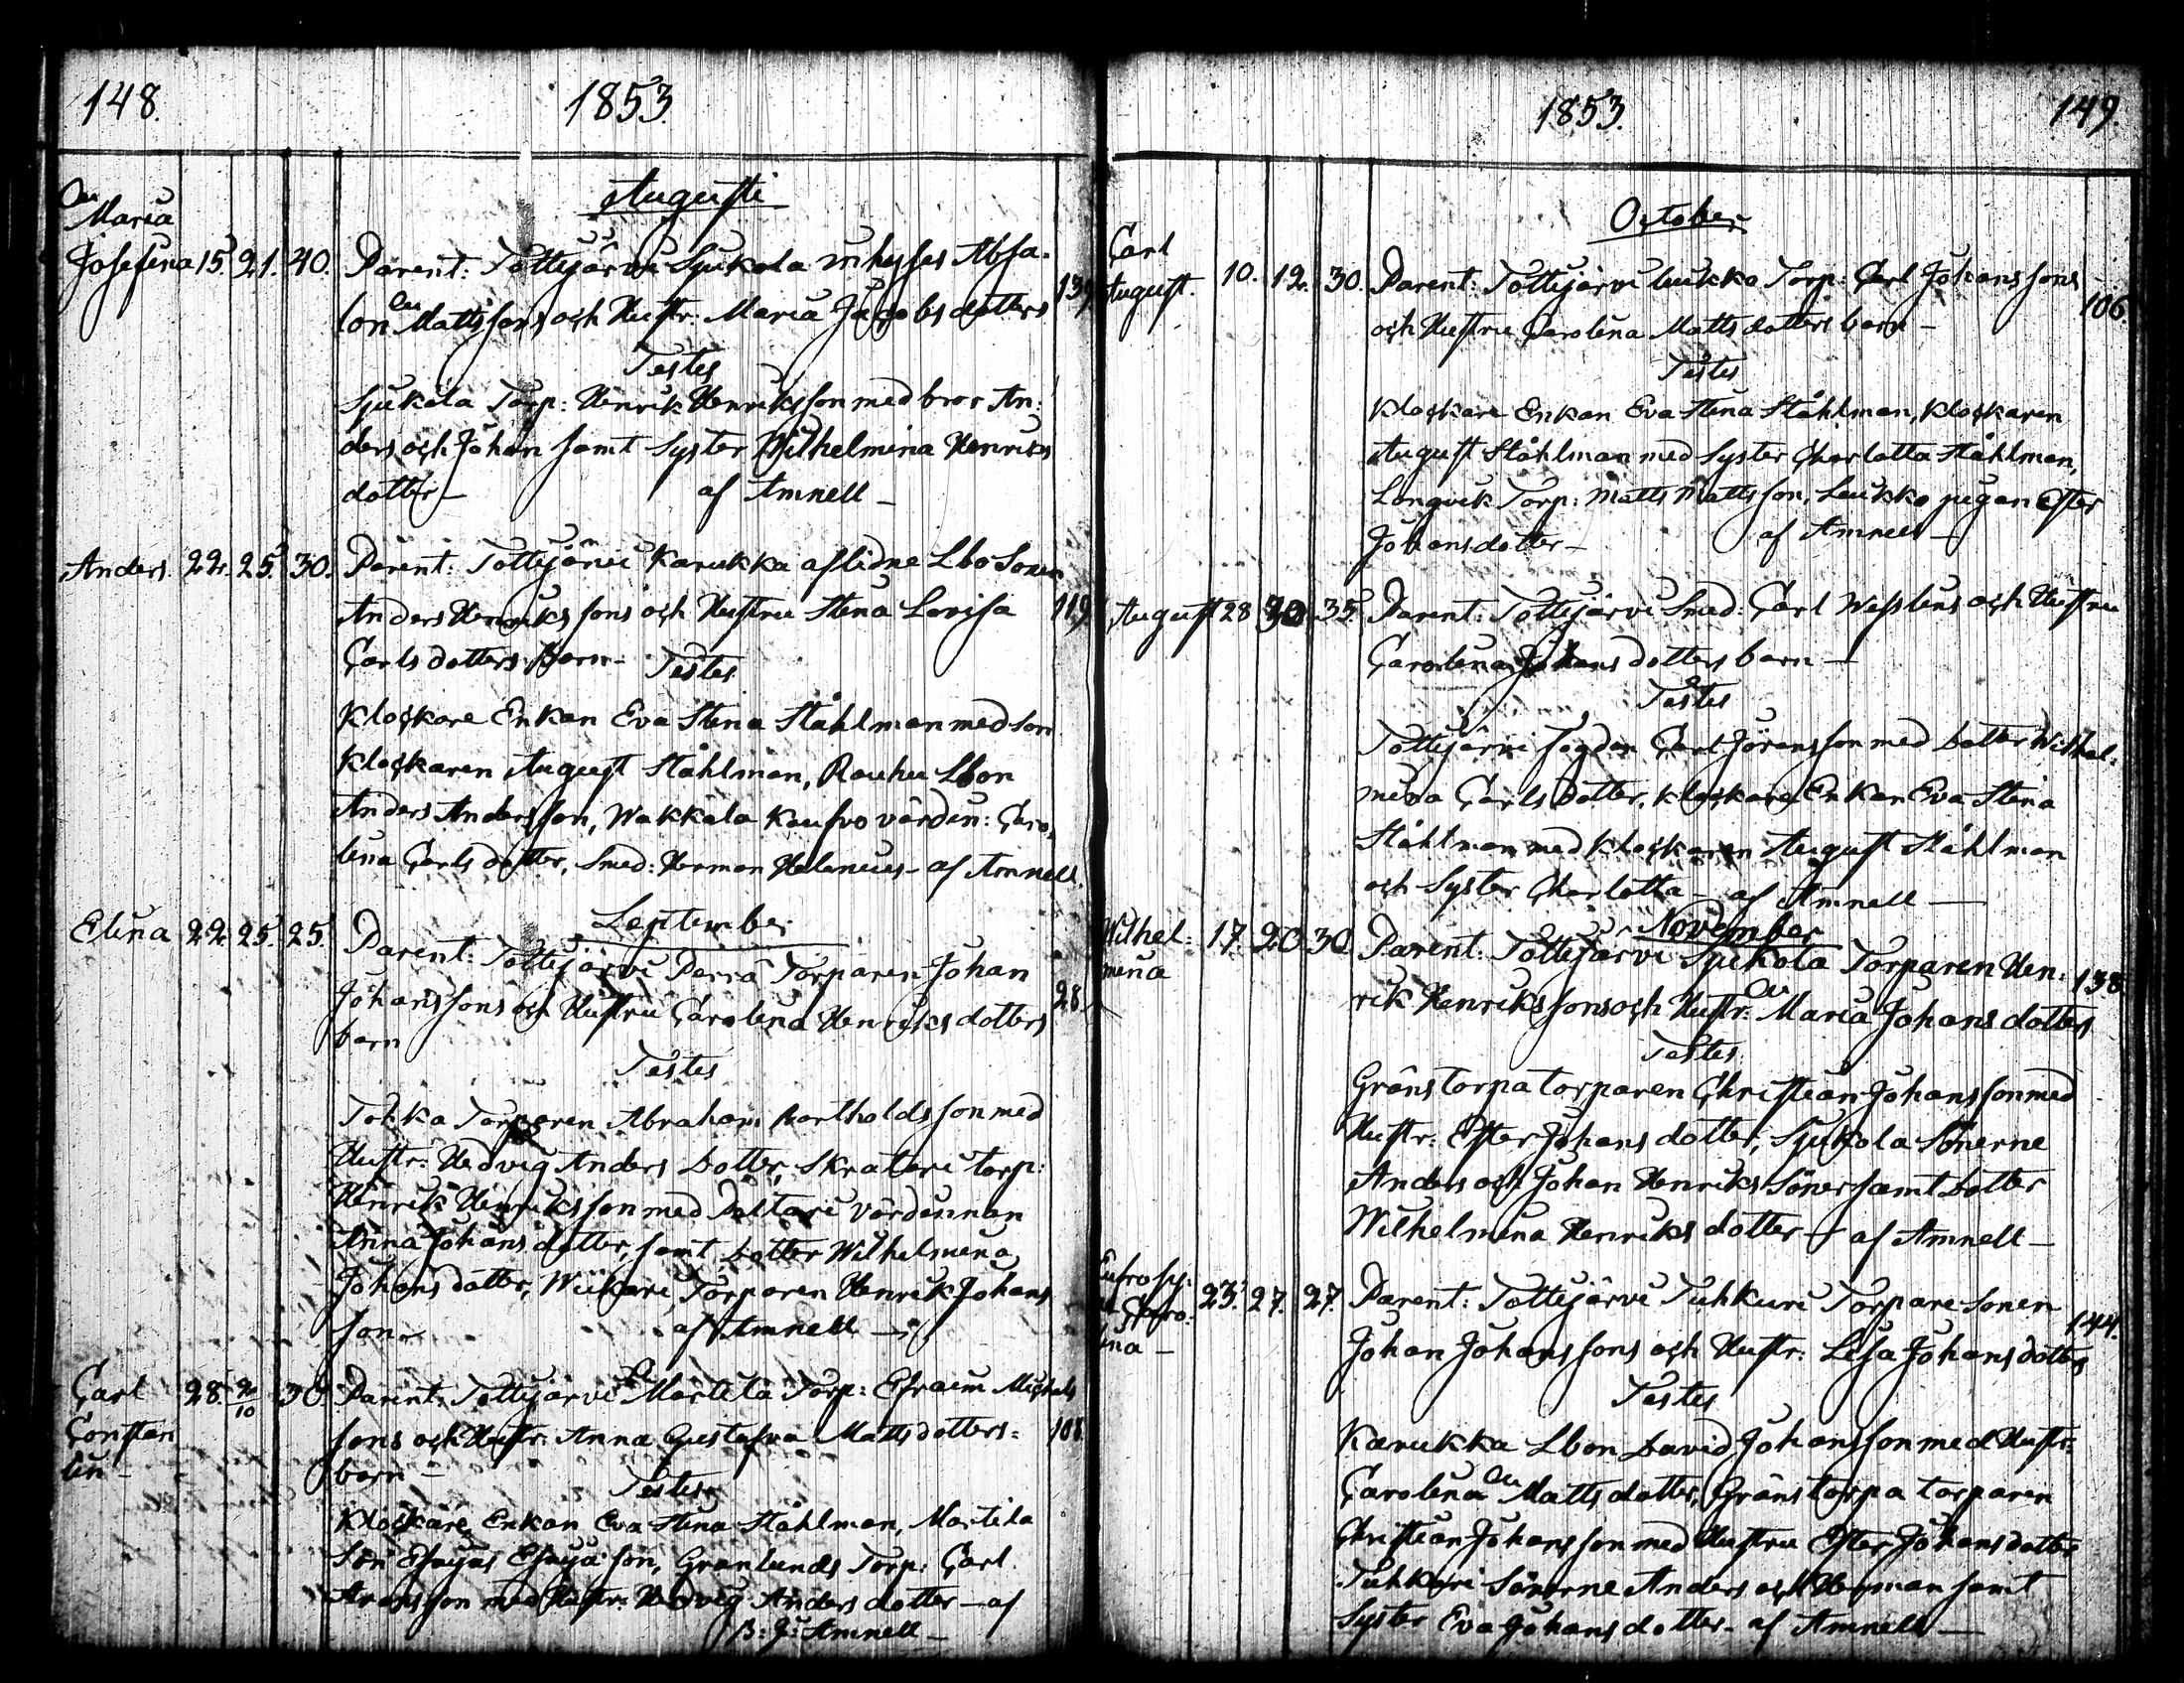 148.
1853.
Augusti
Maria
Josefina 15. 21. 40. Parent: Tottijärvi Sjukola inhyses Absa-
lon Mattssons och Hustr: Maria Jacobsdotters 139
Testes
Sjukola Torp: Henrik Henriksson med bror An-
ders och Johan samt Syster Wilhelmina Henriks
dotter – af Amnell –
Anders. 22. 25. 30. Parent: Tottijärvi Karukka aflidne Lbo Sonen
Anders Henrikssons och Hustru Stena Lovisa 119
Carlsdotters barn –
Testes
Klockare Enkan Eva Stena Ståhlman med son
Klockaren August Ståhlman, Rauhu Lbon
Anders Andersson, Wakkala Kaufvo värdin: Caro-
lina Carlsdotter, Smed: Herman Helenius – af Amnell.
September
Elina 22. 25. 25. Parent: Tottijärvi Perrä Torparen Johan
Johanssons och Hustru Carolina Henriksdotters 28.
barn
Testes
Tokka Torparen Abraham Bartholdsson med
Hustr: Hedvig Anders dotter, Skratari torp:
Henrik Henriksson med Paltari värdinnan
Anna Johans dotter, samt dotter Wilhelmina
Johans dotter, Wiikari Torparen Henrik Johans
son – af Amnell –
Carl 28. 2/10 30. Parent: Tottijärvi Martila Torp: Efraim Michels
Constan sons och Hustr: Anna Gustafva Mattsdotters 108
tin – barn –
Testes
Klockare Enkan Eva Stena Ståhlman, Martila
Son Esaijas Esaija son, Granlunds Torp: Carl
med Hustr: Hedvig Anders dotter – af
B: J: Amnell –
1853.
149.
October
Carl
August. 10. 12. 30. Parent: Tottijärvi Torp: Carl Johanssons
och Hustru Carolina Mattsdotters barn – 106.
Testes
Klockare Enkan Eva Stena Ståhlman, Klockaren
August Ståhlman med Syster Charlotta Ståhlman,
Longvik Torp: Matts Mattsson, Leukko pigan Ester
Johansdotter – af Amnell –
August 28 30 35. Parent: Tottijärvi Smed: Carl Wesslins och Hustru
Carolina Johans dotters barn –
Testes
Tottijärvi fogden Carl Göransson med dotter Wilhel-
mina Carls dotter, Klockare Enkan Eva Stena
Ståhlman med Klockaren August Ståhlman
och Syster Charlotta – af Amnell –
November
Wilhel- 17. 20 30. Parent: Tottijärvi Sjukola Torparen Hen-
mina rik Henrikssons och Hustr: Maria Johansdotters 138.
Testes
Gränstorpa torparen Christian Johansson med
Hustr: Ester Johans dotter, Sjukola Sönerne
Anders och Johan Henriks Söner samt dotter
Wilhelmina Henriks dotter – af Amnell –
Eufrosy-
Caro- 23. 27. 27. Parent: Tottijärvi Tuhkuri Torpare Sonen
lina – Johan Johanssons och Hustr: Lisa Johansdotters 144.
Testes
Karukka Lbon David Johansson med Hustr:
Carolina Matts dotter, Gränstorpa torparen
Christian Johansson med Hustru Ester Johansdotter
Tuhkuri Sönerne Anders och Herman samt
Syster Eva Johansdotter – af Amnell –